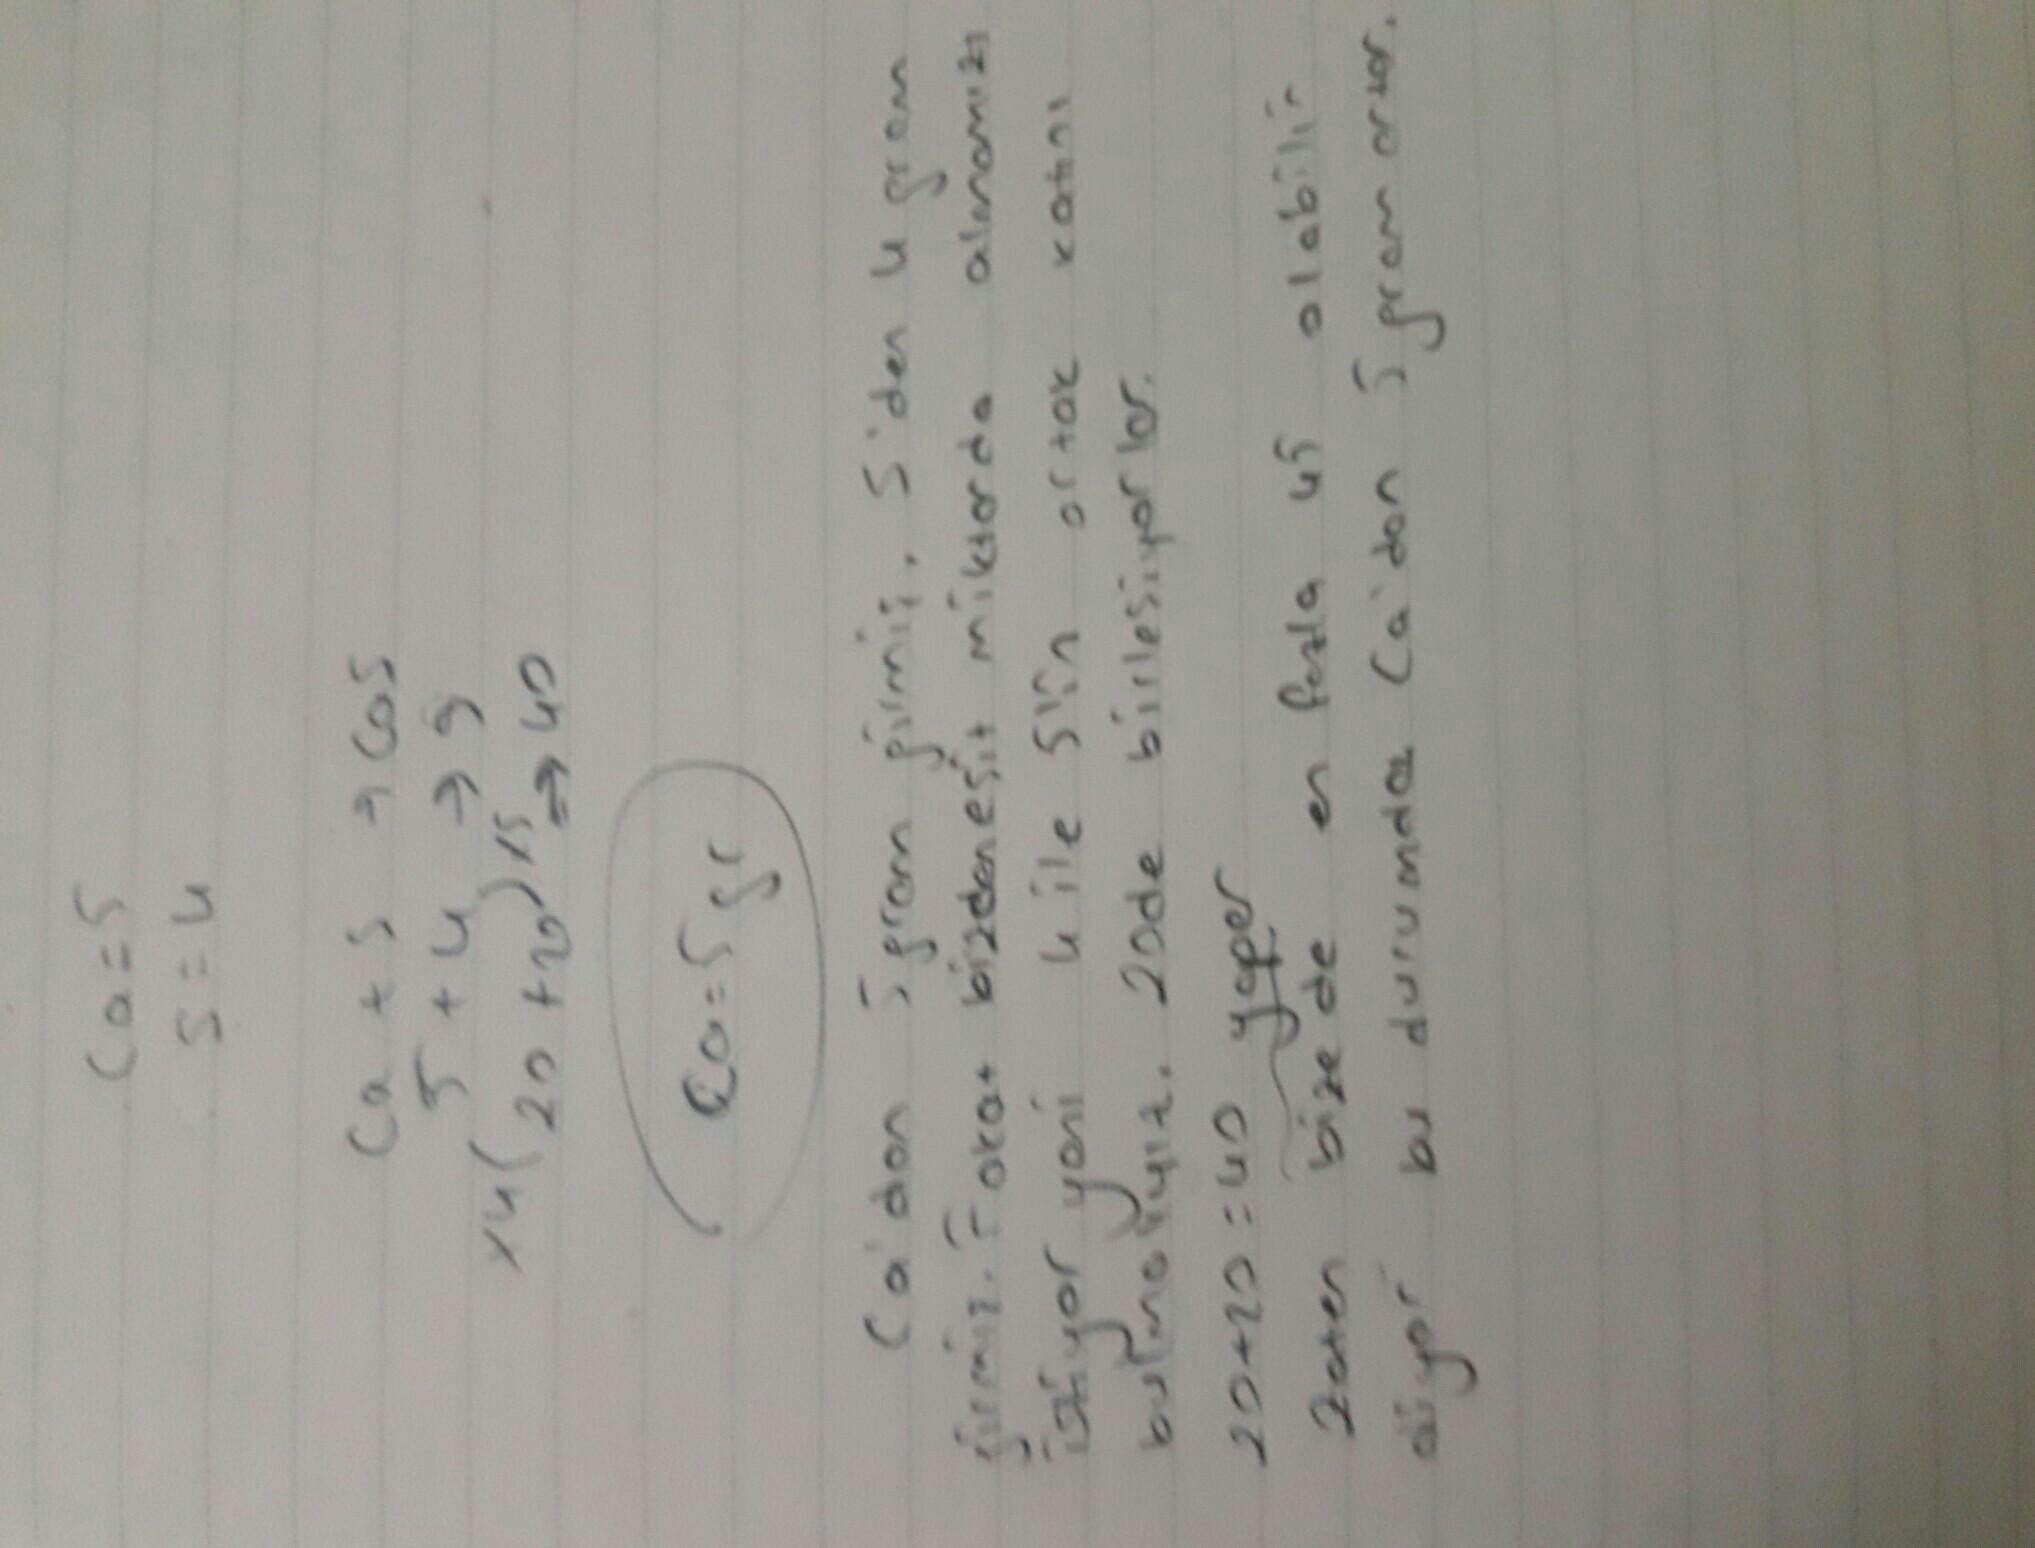 Ca=5
S=4
Ca + S → CaS
5 + 4 → 9
x4( 20 + 20 )x5 ⇒ 40
Ca=5 gr
Ca'dan 5 gram girmiş. S'den 4 gram
girmiş. Fakat bizden eşit miktarda almamızı
istiyor yani 4 ile 5'in ortak katını
bulmalıyız. 20de birleşiyorlar.
20+20=40 yapar
zaten bizede en fazla 45 olabilir
diyor bu durumda Ca'dan 5 gram artar.